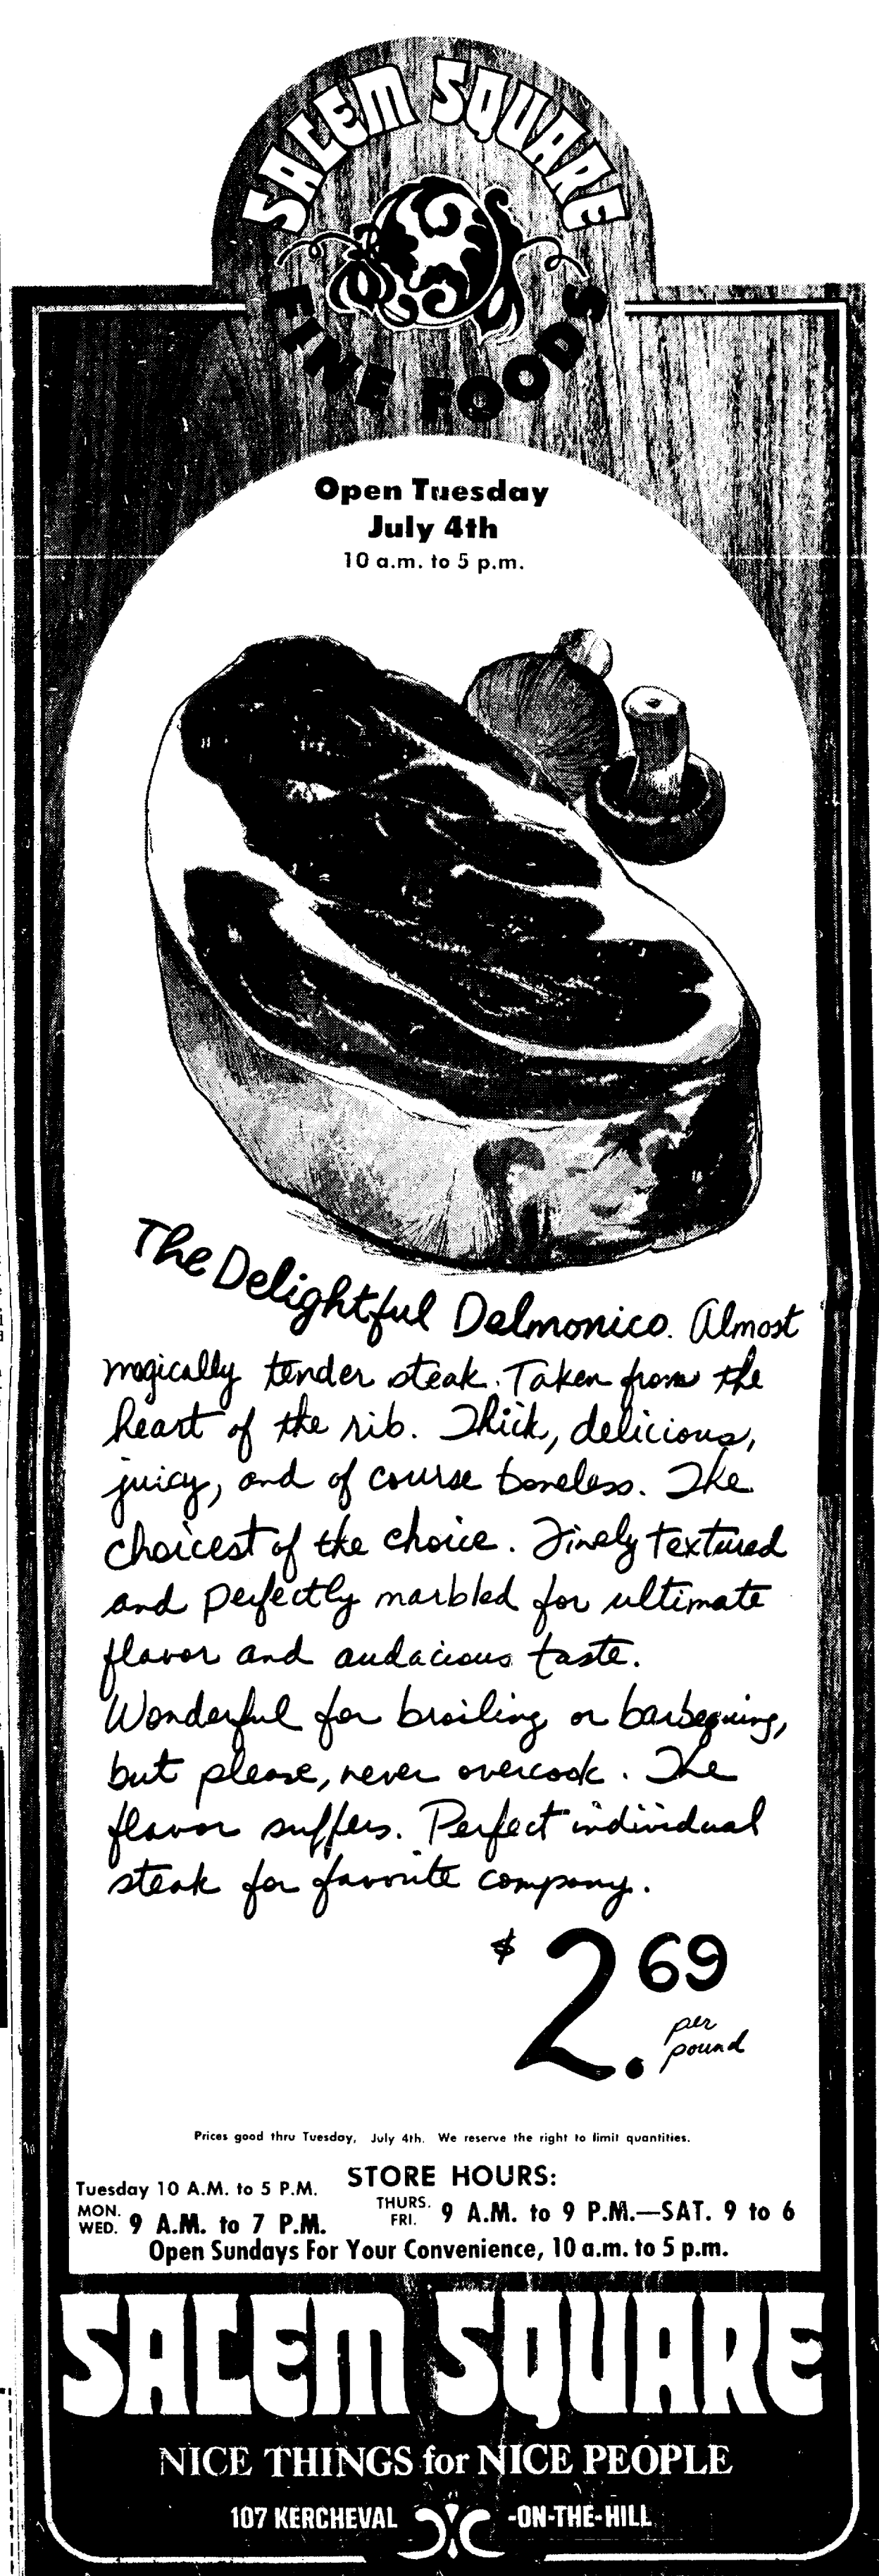 SALEM SQUARE
FINE FOODS
Open Tuesday
July 4th
10 a.m. to 5 p.m.
The Delightful Delmonico. Almost
magically tender steak. Taken from the
heart of the rib. Thick, delicious,
juicy, and of course boneless. The
choicest of the choice. Finely textured
and perfectly marbled for ultimate
flavor and audacious taste.
Wonderful for broiling or barbequing,
but please, never overcook. The
flavor suffers. Perfect individual
steak for favorite company.
$2.69
per
pound
Prices good thru Tuesday, July 4th. We reserve the right to limit quantities.
STORE HOURS:
Tuesday 10 A.M. to 5 P.M.
MON. WED. 9 A.M. to 7 P.M.
THURS. FRI. 9 A.M. to 9 P.M.—SAT. 9 to 6
Open Sundays For Your Convenience, 10 a.m. to 5 p.m.
SALEM SQUARE
NICE THINGS for NICE PEOPLE
107 KERCHEVAL -ON-THE-HILL